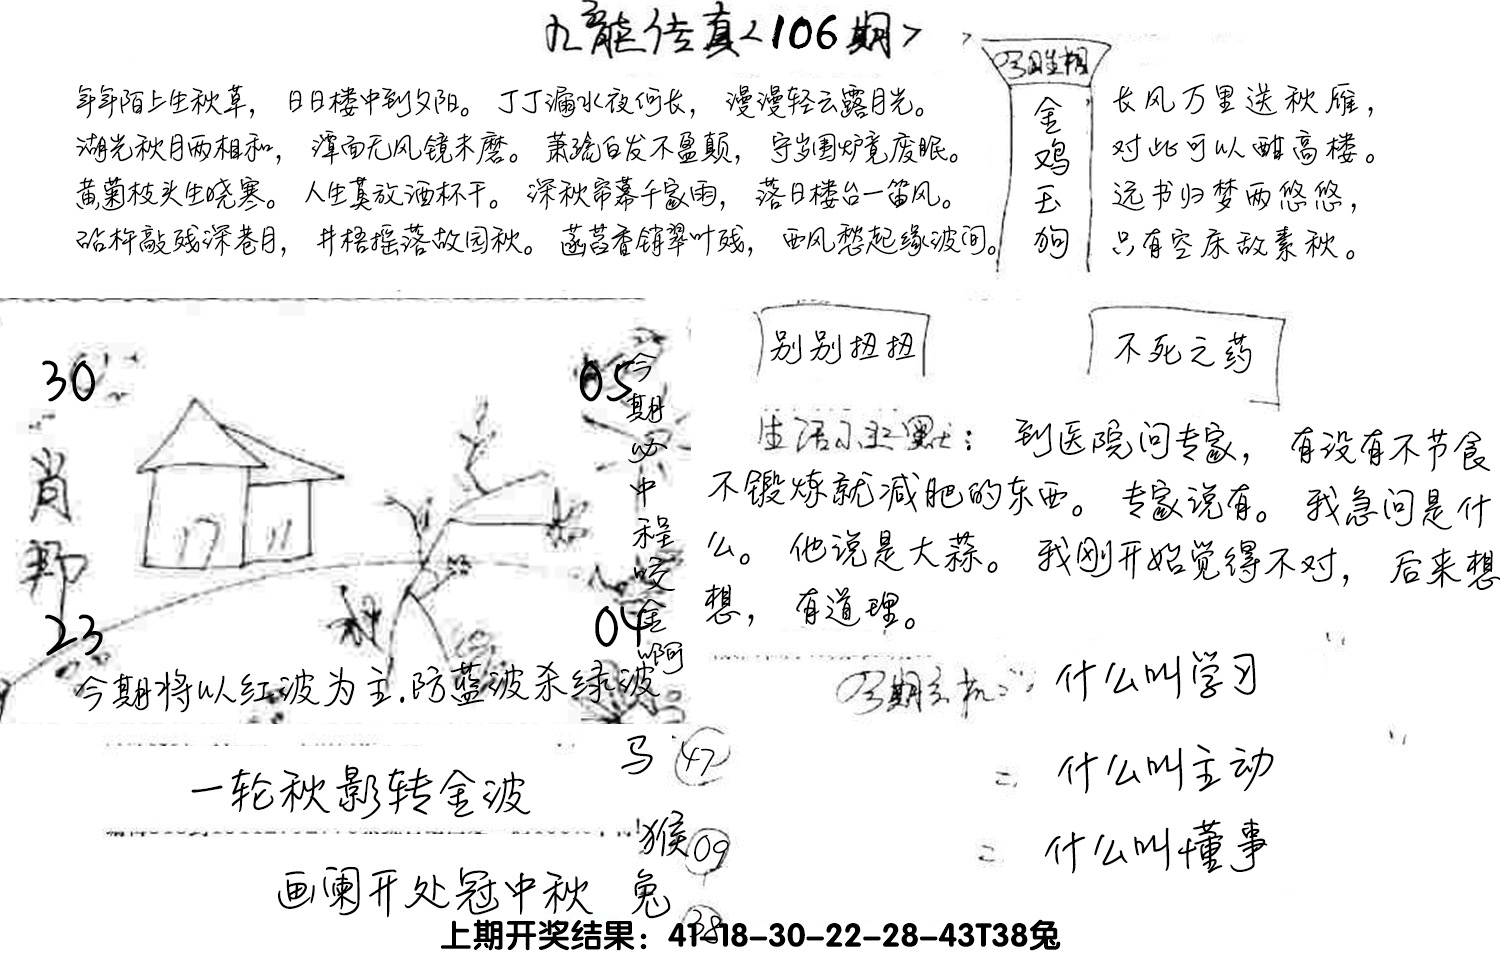 九龙传真<106期>
今期生相
金鸡玉狗
年年陌上生秋草，日日楼中到夕阳。丁丁漏水夜何长，漫漫轻云露月光。
湖光秋月两相和，潭面无风镜未磨。萧飒白发不盈颠，守岁围炉竟废眠。
黄菊枝头生晓寒。人生莫放酒杯干。深秋帘幕千家雨，落日楼台一笛风。
砧杵敲残深巷月，井梧摇落故园秋。菡萏香销翠叶残，西风愁起缘波间。
长风万里送秋雁，
对此可以酣高楼。
远书归梦两悠悠，
只有空床敌素秋。
30
05
肖
23
04
今期必中程咬金啊
今期将以红波为主.防蓝波杀绿波
别别扭扭
不死之药
生活小幽默：到医院问专家，有没有不节食
不锻炼就减肥的东西。专家说有。我急问是什
么。他说是大蒜。我刚开始觉得不对，后来想
想，有道理。
今期玄机二：什么叫学习
二 什么叫主动
二 什么叫懂事
一轮秋影转金波
画阑开处冠中秋
马 47
猴 09
兔 38
上期开奖结果：41-18-30-22-28-43T38兔